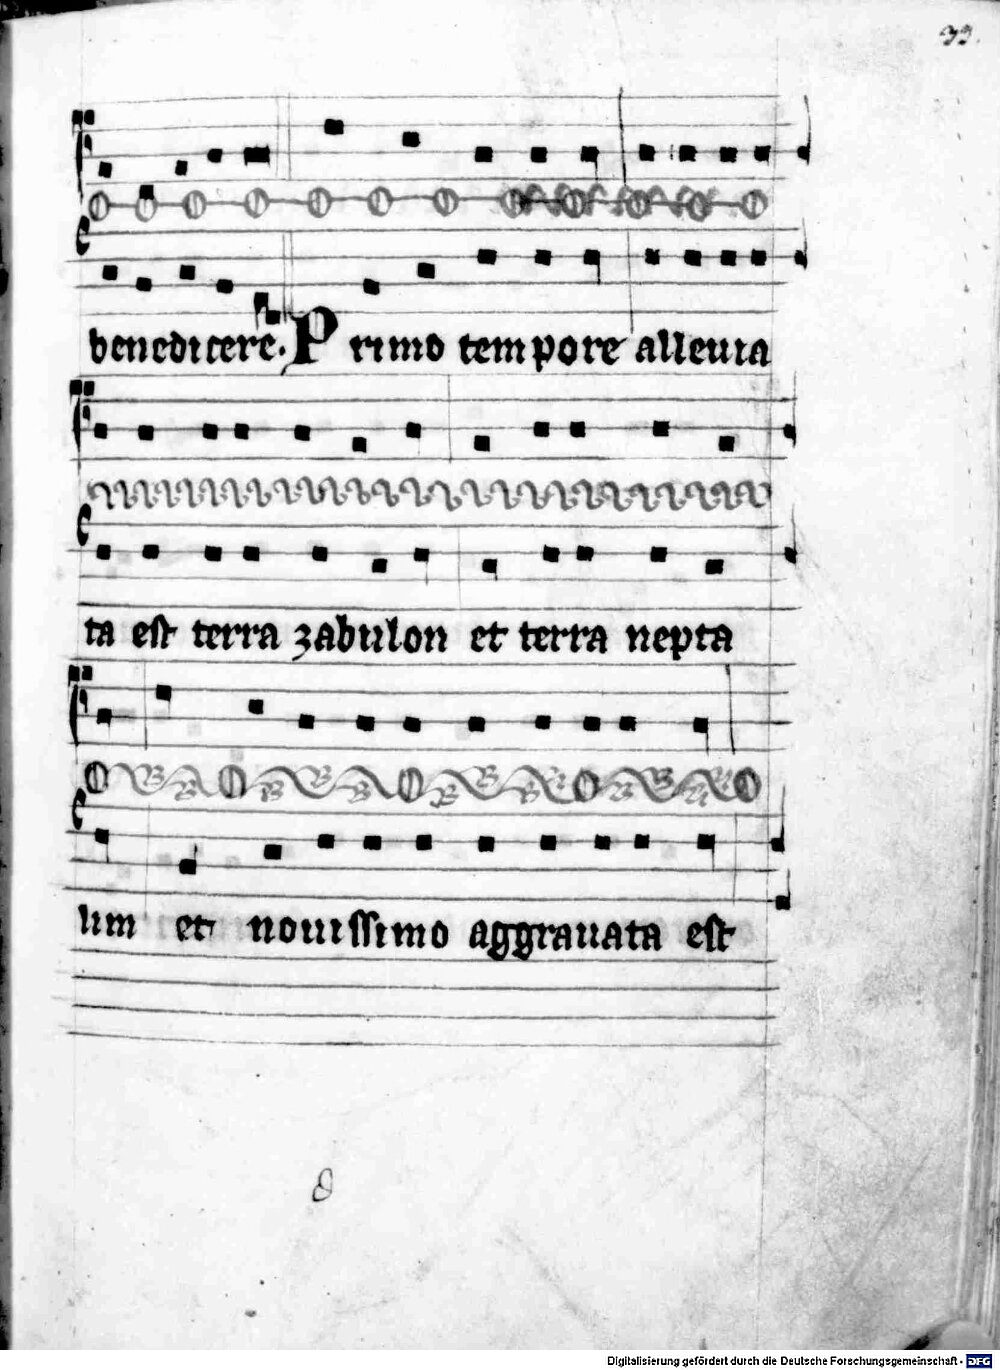 33.
benedicere. Primo tempore alleuia
ta est terra zabulon et terra nepta
lim et nouissimo aggrauata est
8
Digitalisierung gefördert durch die Deutsche Forschungsgemeinschaft - DFG